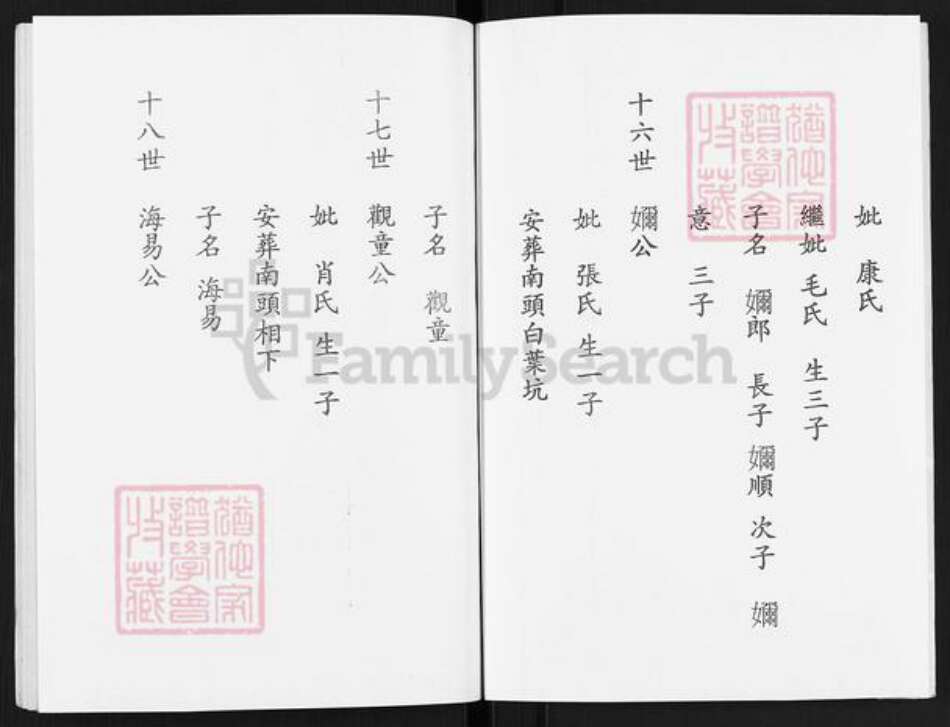 妣 康氏
繼妣 毛氏 生三子
子名 嬭郎 長子 嬭順 次子 嬭
意 三子
十六世 嬭公
妣 張氏 生一子
安葬南頭白葉坑
子名 觀童
十七世 觀童公
妣 肖氏 生一子
安葬南頭相下
子名 海易
十八世 海易公
猶他家
譜學會
收藏
猶他家
譜學會
收藏
FamilySearch